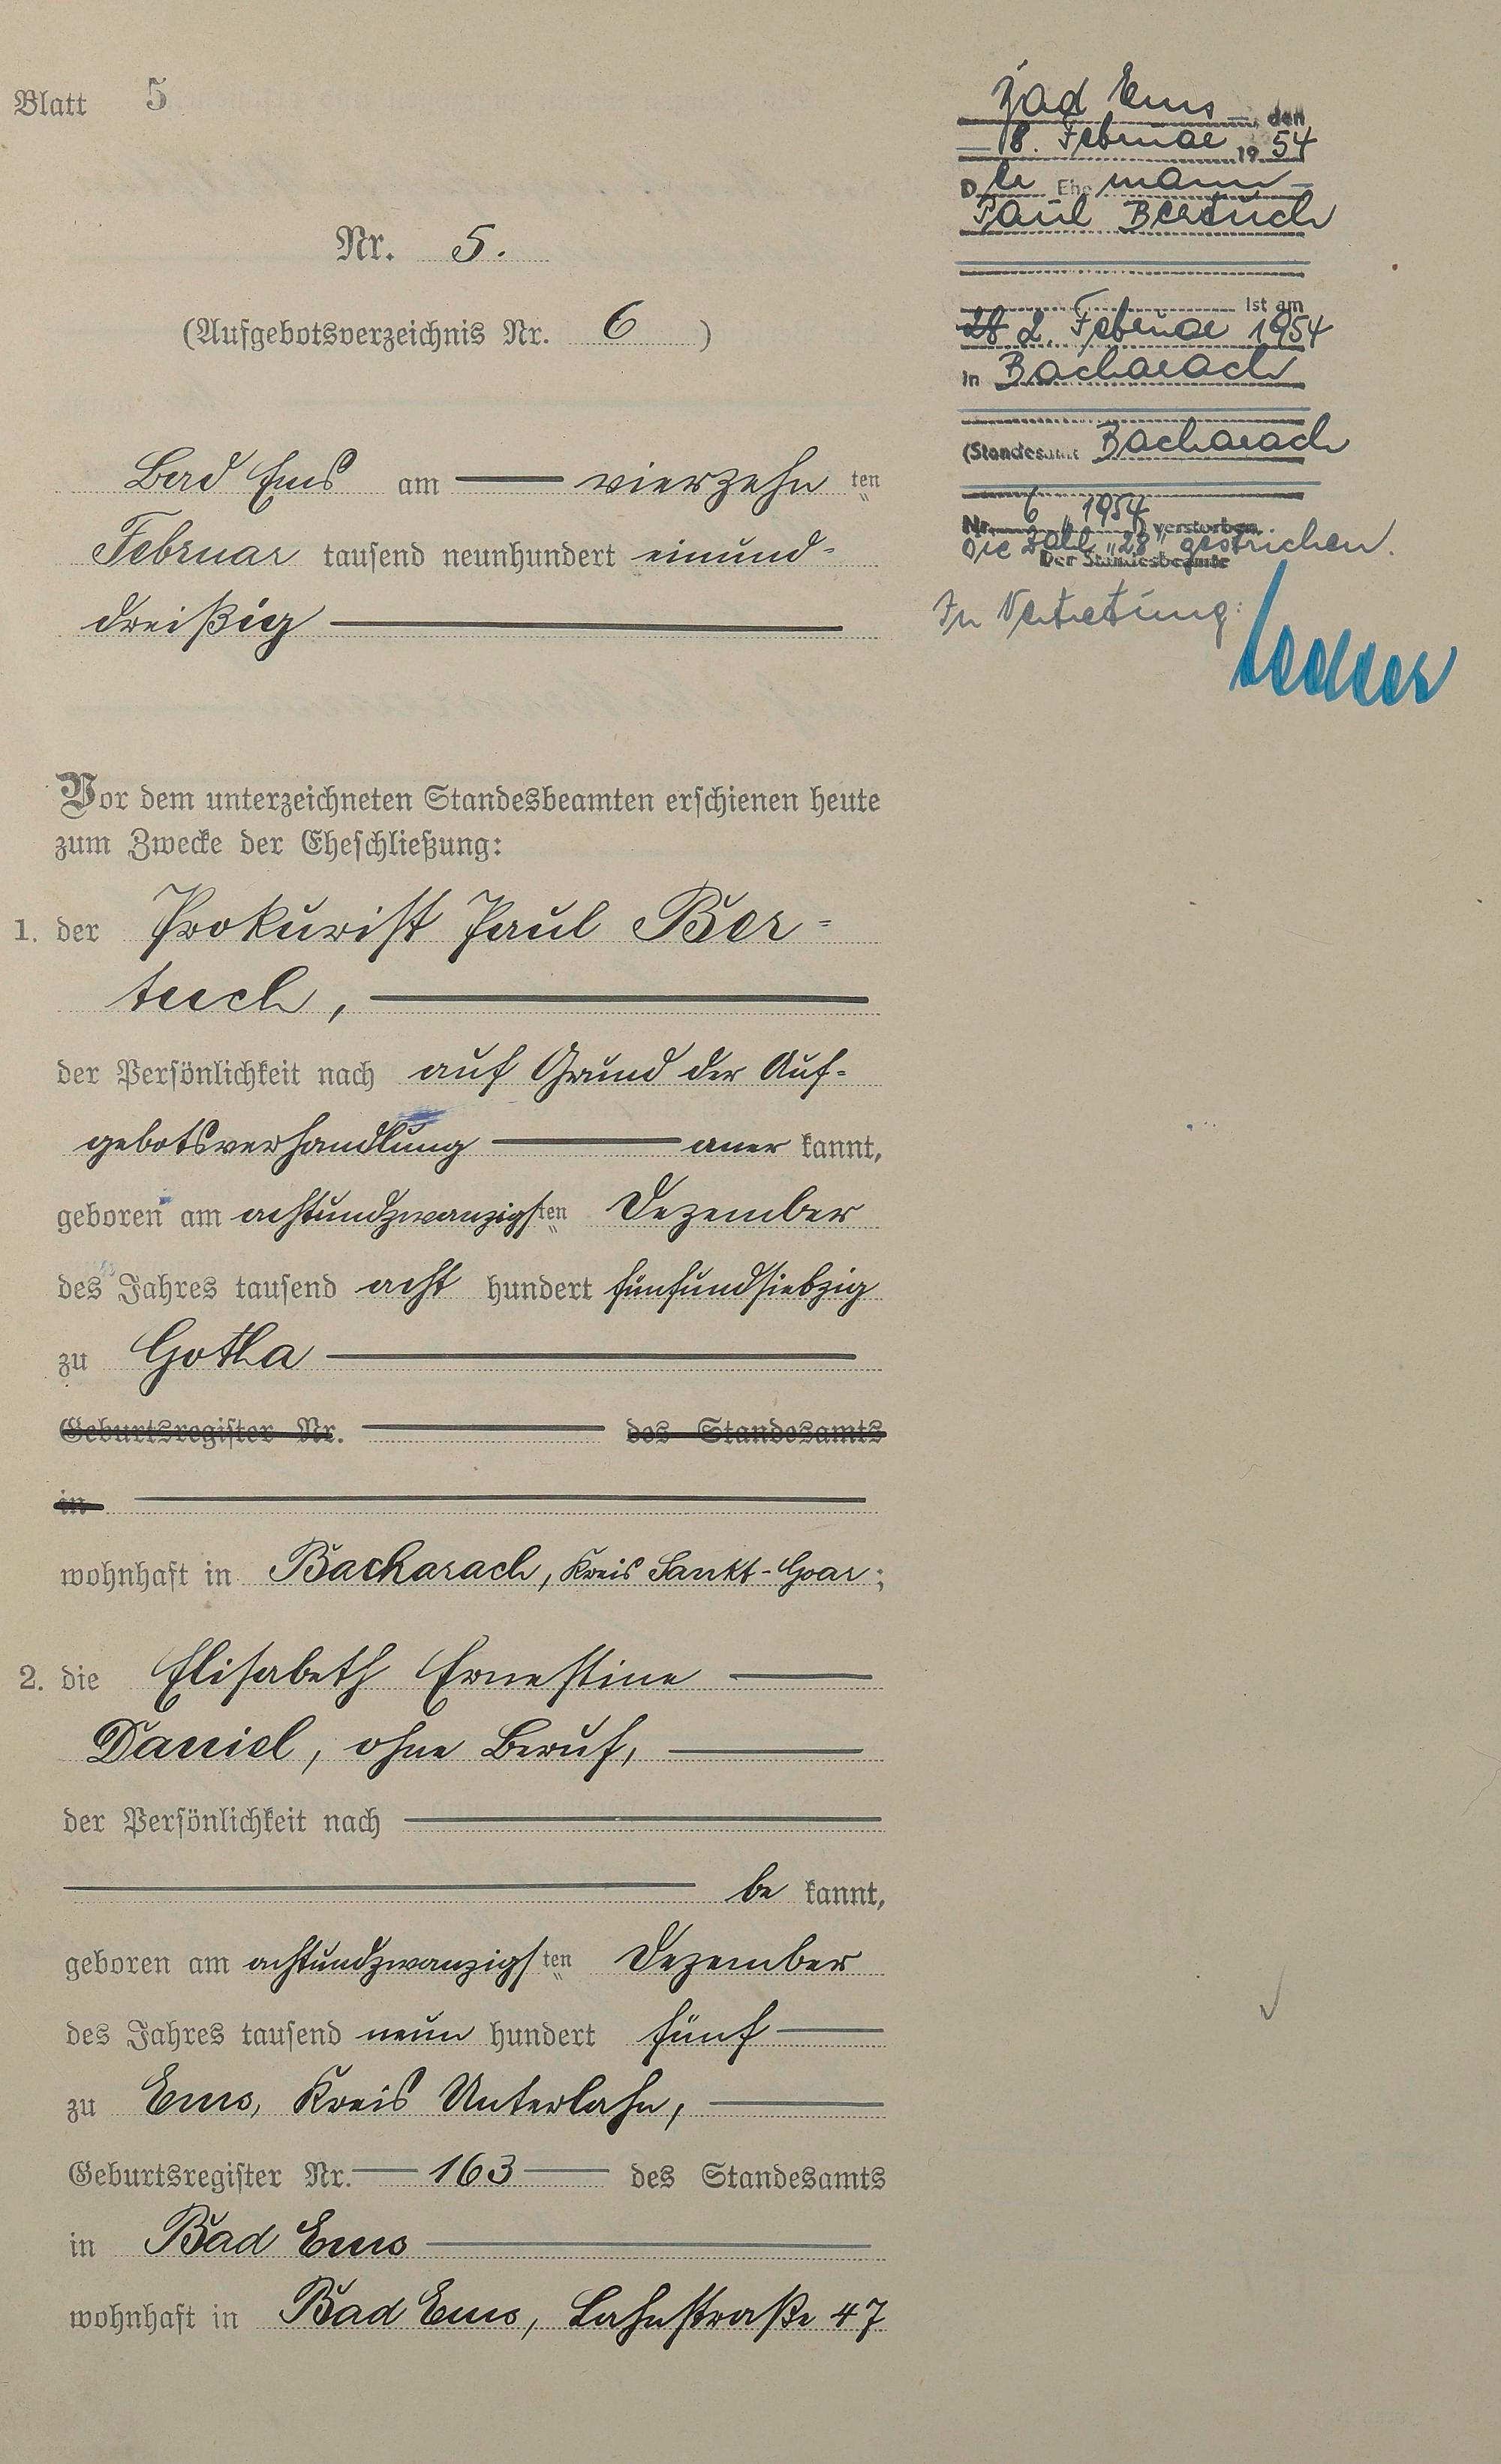 Blatt 5
Nr. 5.
(Aufgebotsverzeichnis Nr. 6 )
Bad Ems am vierzehn ten
Februar tausend neunhundert einund-
dreißig
Vor dem unterzeichneten Standesbeamten erschienen heute
zum Zwecke der Eheschließung:
1. der Prokurist Paul Ber-
tuch,
der Persönlichkeit nach auf Grund der Auf-
gebotsverhandlung aner kannt,
geboren am achtundzwanzigsten Dezember
des Jahres tausend acht hundert fünfundsiebzig
zu Gotha
Geburtsregister Nr. des Standesamts
in
wohnhaft in Bacharach, Kreis Sankt-Goar;
2. die Elisabeth Ernestine
Daniel, ohne Beruf,
der Persönlichkeit nach
be kannt,
geboren am achtundzwanzigsten Dezember
des Jahres tausend neun hundert fünf
zu Ems, Kreis Unterlahn,
Geburtsregister Nr. 163 des Standesamts
in Bad Ems
wohnhaft in Bad Ems, Lahnstraße 47
Bad Ems, den
18. Februar 1954
Der Ehemann
Paul Bertuch
ist am
28 2. Februar 1954
in Bacharach
(Standesamt Bacharach
Nr. 6 1954) verstorben.
Die Zahl „28" gestrichen.
Der Standesbeamte
In Vertretung: